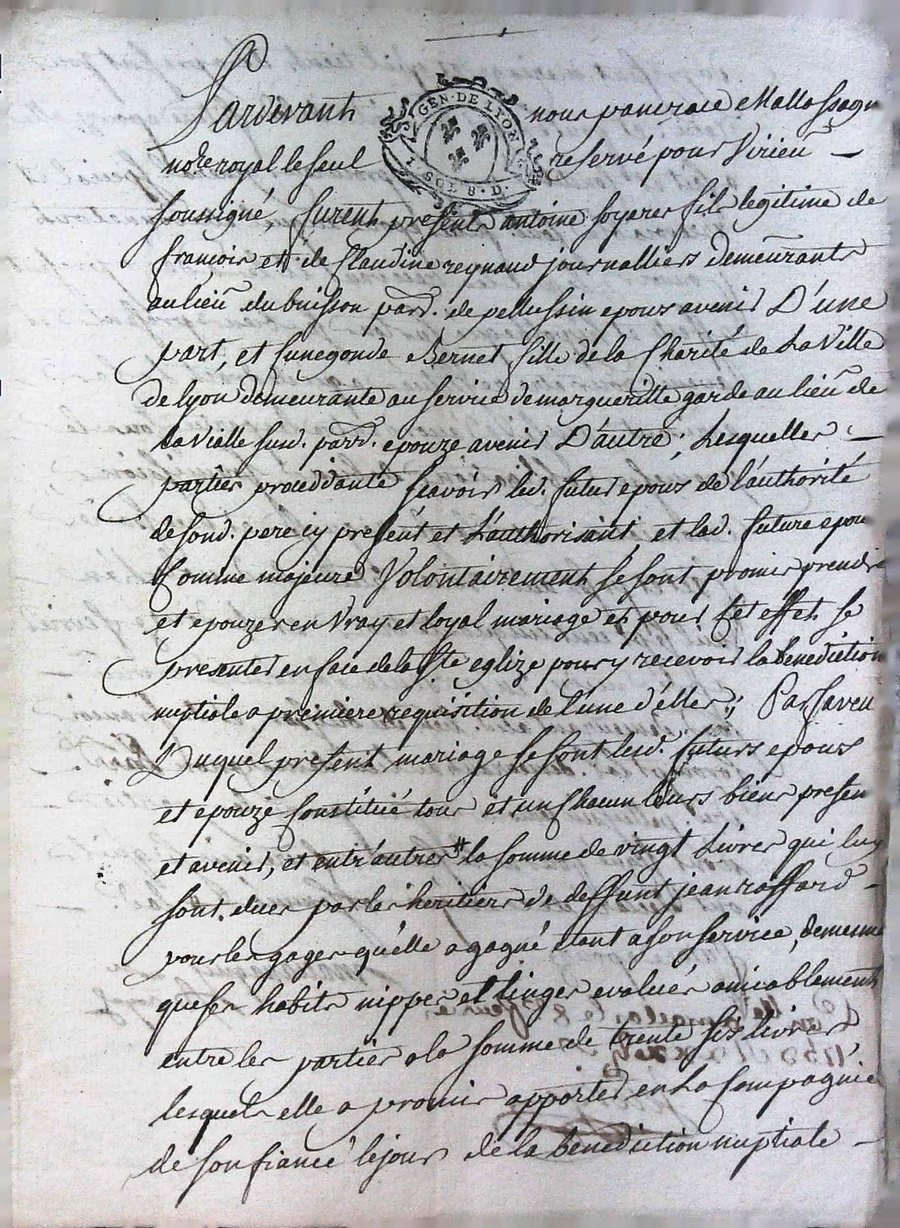 GEN · DE LYON
1 SOL 8 · D
Pardevant nous pancrace Mallossagn
no.re royal le seul reservé pour Virieu
soussigné, furent présents antoine soyeres fils legitime de
francois et de Claudine reynaud journalliers demeurants
au lieu du buisson parr. de pellussin epoux avenir D'une
part, et Cunegonde Bernet fille de la Charité de La Ville
de lyon demeurante au service de margueritte garde au lieu de
la Vialle susd. parr. epouze avenir D'autre; Lesquelles
parties proceddante scavoir led. futur epoux de l'authorité
de sond. pere icy présent et L'authorisant et lad. future epou
Comme majeure Volontairement se sont promis prendre
et epouzer en Vray et loyal mariage et pour Cet effet se
presenter en face de la Ste eglize pour y recevoir la benediction
nuptiale a premiere requisition de l'une d'elles; Par faveu
Duquel présent mariage se sont lesd. futurs epoux
et epouze Constitué tous et un Chacun leurs biens presen
et avenir, et entr'autres # la somme de vingt Livres qui luy
sont dues par les heritiers de deffunt jean raffard
pour les gages qu'elle a gagné etant a son service, de mesme
que ses habits nippes et linges evalués amicablement
entre les parties a la somme de trente six livres
lesquels elle a promis apporter en La Compagnie
de son fiancé le jour de la benediction nuptiale